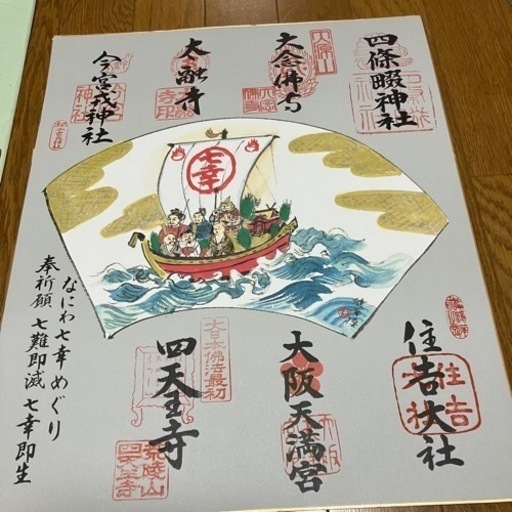 四條畷神社
大念佛寺
太融寺
今宮戎神社
七幸
住吉大社
住吉
大阪天満宮
大日本佛法最初
四天王寺
荒陵山
なにわ七幸めぐり
奉祈願 七難即滅 七幸即生